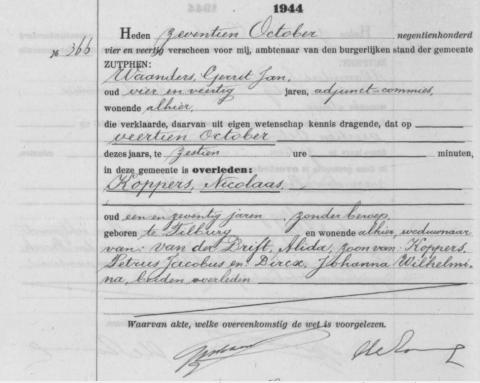 1944
Heden zeventien October negentienhonderd
№ 366 vier en veertig verscheen voor mij, ambtenaar van den burgerlijken stand der gemeente
ZUTPHEN:
Waanders, Gerrit Jan,
oud vier en veertig jaren, adjunct-commies,
wonende alhier,
die verklaarde, daarvan uit eigen wetenschap kennis dragende, dat op
veertien October
dezes jaars, te zestien ure minuten,
in deze gemeente is overleden:
Koppers, Nicolaas,
oud een en zeventig jaren, zonder beroep,
geboren te Tilburg en wonende alhier, weduwnaar
van: van der Drift, Alida, zoon van: Koppers,
Petrus Jacobus en Dircx, Johanna Wilhelmi-
na, beiden overleden
Waarvan akte, welke overeenkomstig de wet is voorgelezen.